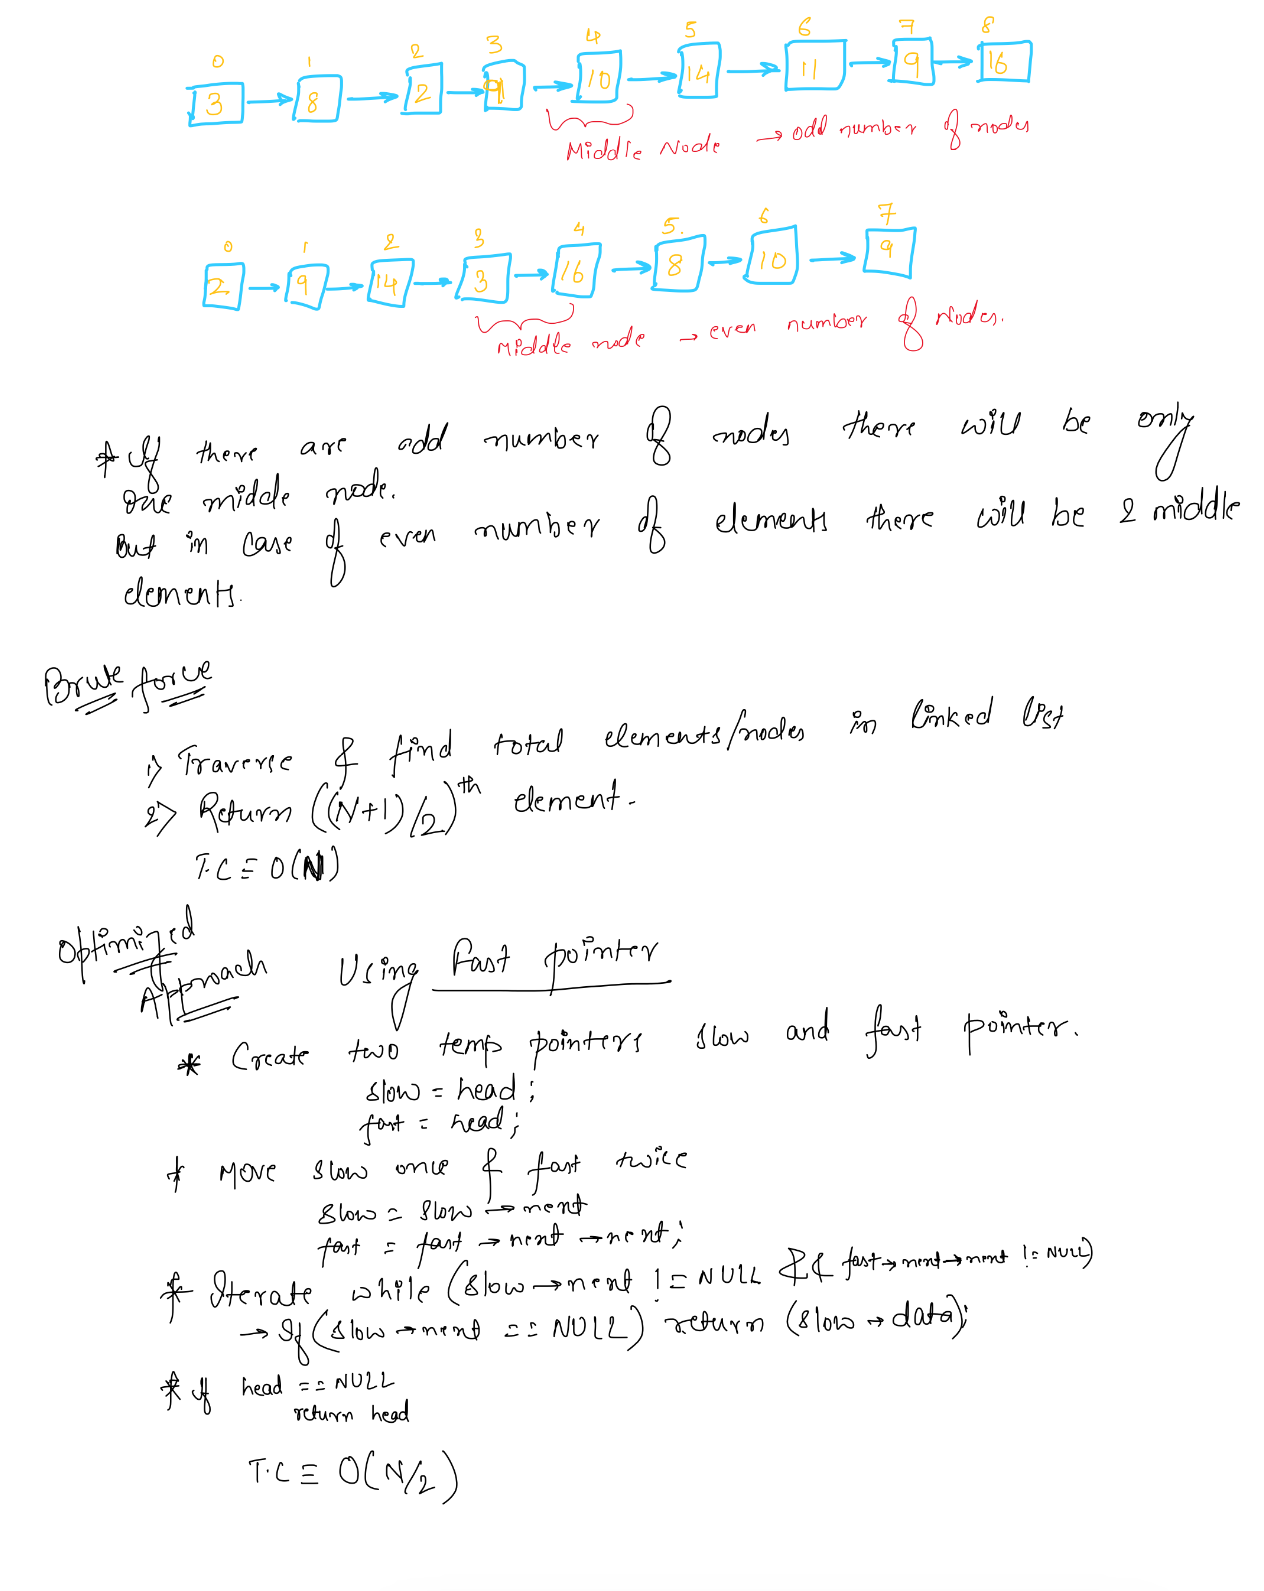 0 1 2 3 4 5 6 7 8
3 8 2 9 10 14 11 9 16
Middle Node → odd number of nodes
0 1 2 3 4 5. 6 7
2 9 14 3 16 8 10 9
Middle node → even number of Nodes.
* If there are odd number of nodes there will be only
one middle node.
But in case of even number of elements there will be 2 middle
elements.
Brute force
1) Traverse & find total elements/nodes in linked list
2) Return ((N+1)/2)th element.
T.C ≡ O(N)
Optimized
Approach Using Fast pointer
* Create two temp pointers slow and fast pointer.
slow = head;
fast = head;
* Move slow once & fast twice
slow = slow → next
fast = fast → next → next;
* Iterate while (slow → next != NULL && fast → next → next != NULL)
→ If (slow → next == NULL) return (slow → data);
* If head == NULL
return head
T.C ≡ O(N/2)